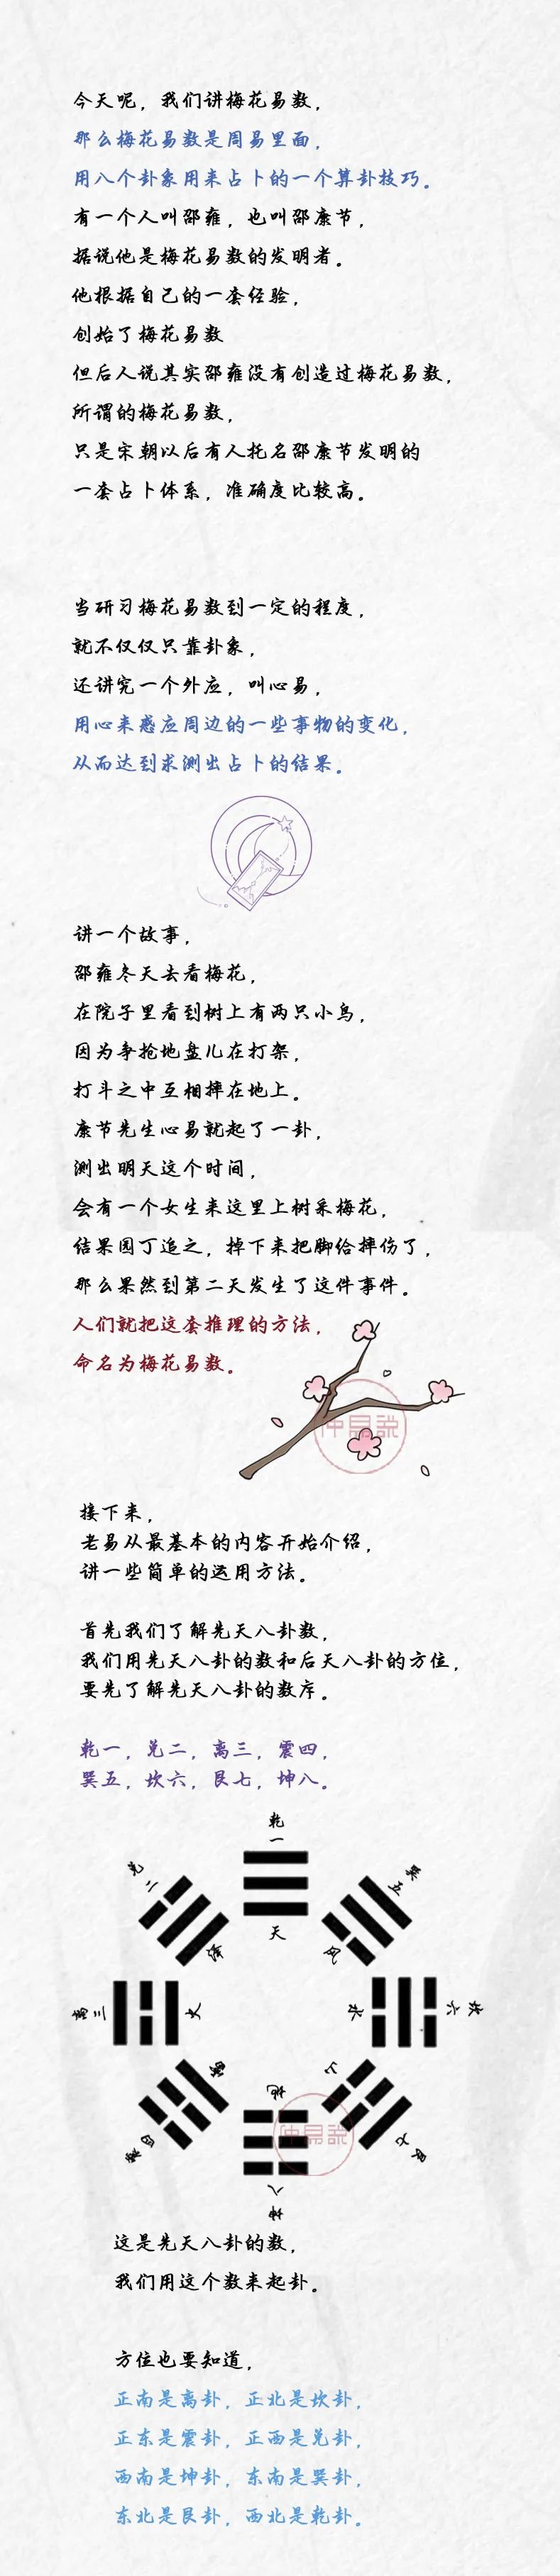 今天呢，我们讲梅花易数，
那么梅花易数是周易里面，
用八个卦象用来占卜的一个算卦技巧。
有一个人叫邵雍，也叫邵康节，
据说他是梅花易数的发明者。
他根据自己的一套经验，
创始了梅花易数
但后人说其实邵雍没有创造过梅花易数，
所谓的梅花易数，
只是宋朝以后有人托名邵康节发明的
一套占卜体系，准确度比较高。
当研习梅花易数到一定的程度，
就不仅仅只靠卦象，
还讲究一个外应，叫心易，
用心来感应周边的一些事物的变化，
从而达到求测出占卜的结果。
讲一个故事，
邵雍冬天去看梅花，
在院子里看到树上有两只小鸟，
因为争抢地盘儿在打架，
打斗之中互相摔在地上。
康节先生心易就起了一卦，
测出明天这个时间，
会有一个女生来这里上树采梅花，
结果园丁追之，掉下来把脚给摔伤了，
那么果然到第二天发生了这件事件。
人们就把这套推理的方法，
命名为梅花易数。
仲易説
接下来，
老易从最基本的内容开始介绍，
讲一些简单的运用方法。
首先我们了解先天八卦数，
我们用先天八卦的数和后天八卦的方位，
要先了解先天八卦的数序。
乾一，兑二，离三，震四，
巽五，坎六，艮七，坤八。
乾一
天
兑二
泽
巽五
风
离三
火
坎六
水
震四
雷
艮七
山
地
坤八
仲易説
这是先天八卦的数，
我们用这个数来起卦。
方位也要知道，
正南是离卦，正北是坎卦，
正东是震卦，正西是兑卦，
西南是坤卦，东南是巽卦，
东北是艮卦，西北是乾卦。